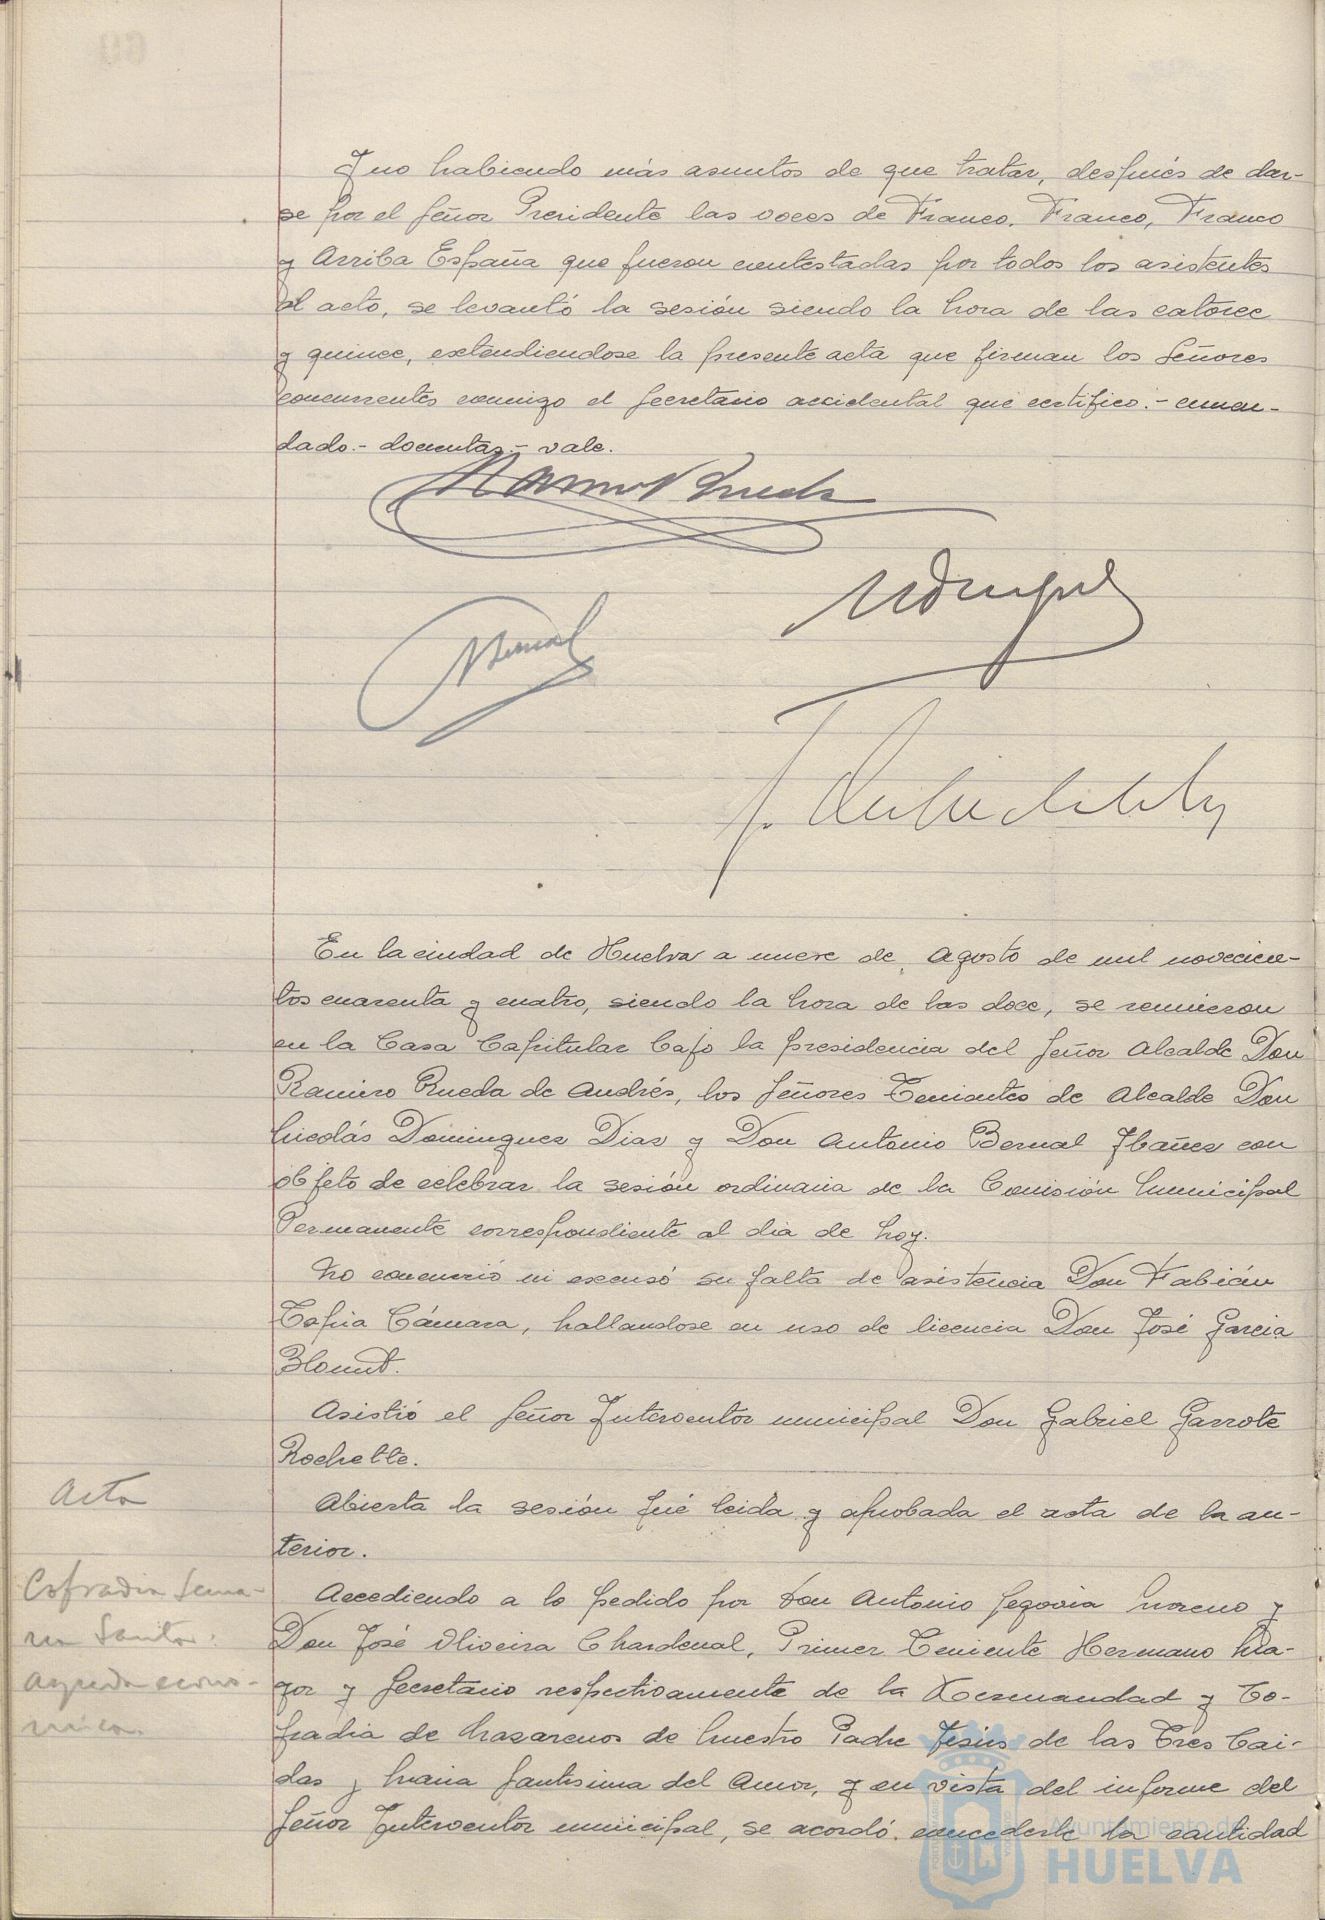 Y no habiendo más asuntos de que tratar, después de dar-
se por el Señor Presidente las voces de Franco, Franco, Franco
y Arriba España que fueron contestadas por todos los asistentes
al acto, se levantó la sesión siendo la hora de las catorce
y quince, extendiendose la presente acta que firman los Señores
concurrentes conmigo el Secretario accidental que certifico.- enmen-
dado.- docentas.- vale.
Bernal
En la ciudad de Huelva a nueve de Agosto de mil novecien-
tos cuarenta y cuatro, siendo la hora de las doce, se reunieron
en la Casa Capitular bajo la presidencia del Señor Alcalde Don
Ramiro Rueda de Andrés, los Señores Tenientes de Alcalde Don
Nicolás Dominguez Diaz y Don Antonio Bernal Ibañez con
objeto de celebrar la sesión ordinaria de la Comisión Municipal
Permanente correspondiente al dia de hoy.
No concurrió ni excusó su falta de asistencia Don Fabián
Tapia Cámara, hallandose en uso de licencia Don José Garcia
Blount.
Asistió el Señor Interventor municipal Don Gabriel Garrote
Rochette.
Acta
Abierta la sesión fué leida y aprobada el acta de la an-
terior.
Cofradia Sema-
na Santa.
Ayuda econó-
mica.
Accediendo a lo pedido por Don Antonio Segovia Moreno y
Don José Oliveira Chardenal, Primer Teniente Hermano Ma-
yor y Secretario respectivamente de la Hermandad y Co-
fradia de Nazarenos de Nuestro Padre Jesús de las Tres Cai-
das y Maria Santisima del Amor, y en vista del informe del
Señor Interventor municipal, se acordó concederle la cantidad
Ayuntamiento de
HUELVA